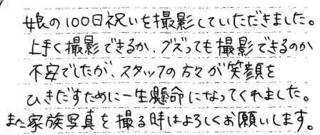 娘の100日祝いを撮影していただきました。
上手く撮影できるか、グズっても撮影できるのか
不安でしたが、スタッフの方々が笑顔を
ひきだすために一生懸命になってくれました。
また家族写真を撮る時はよろしくお願いします。